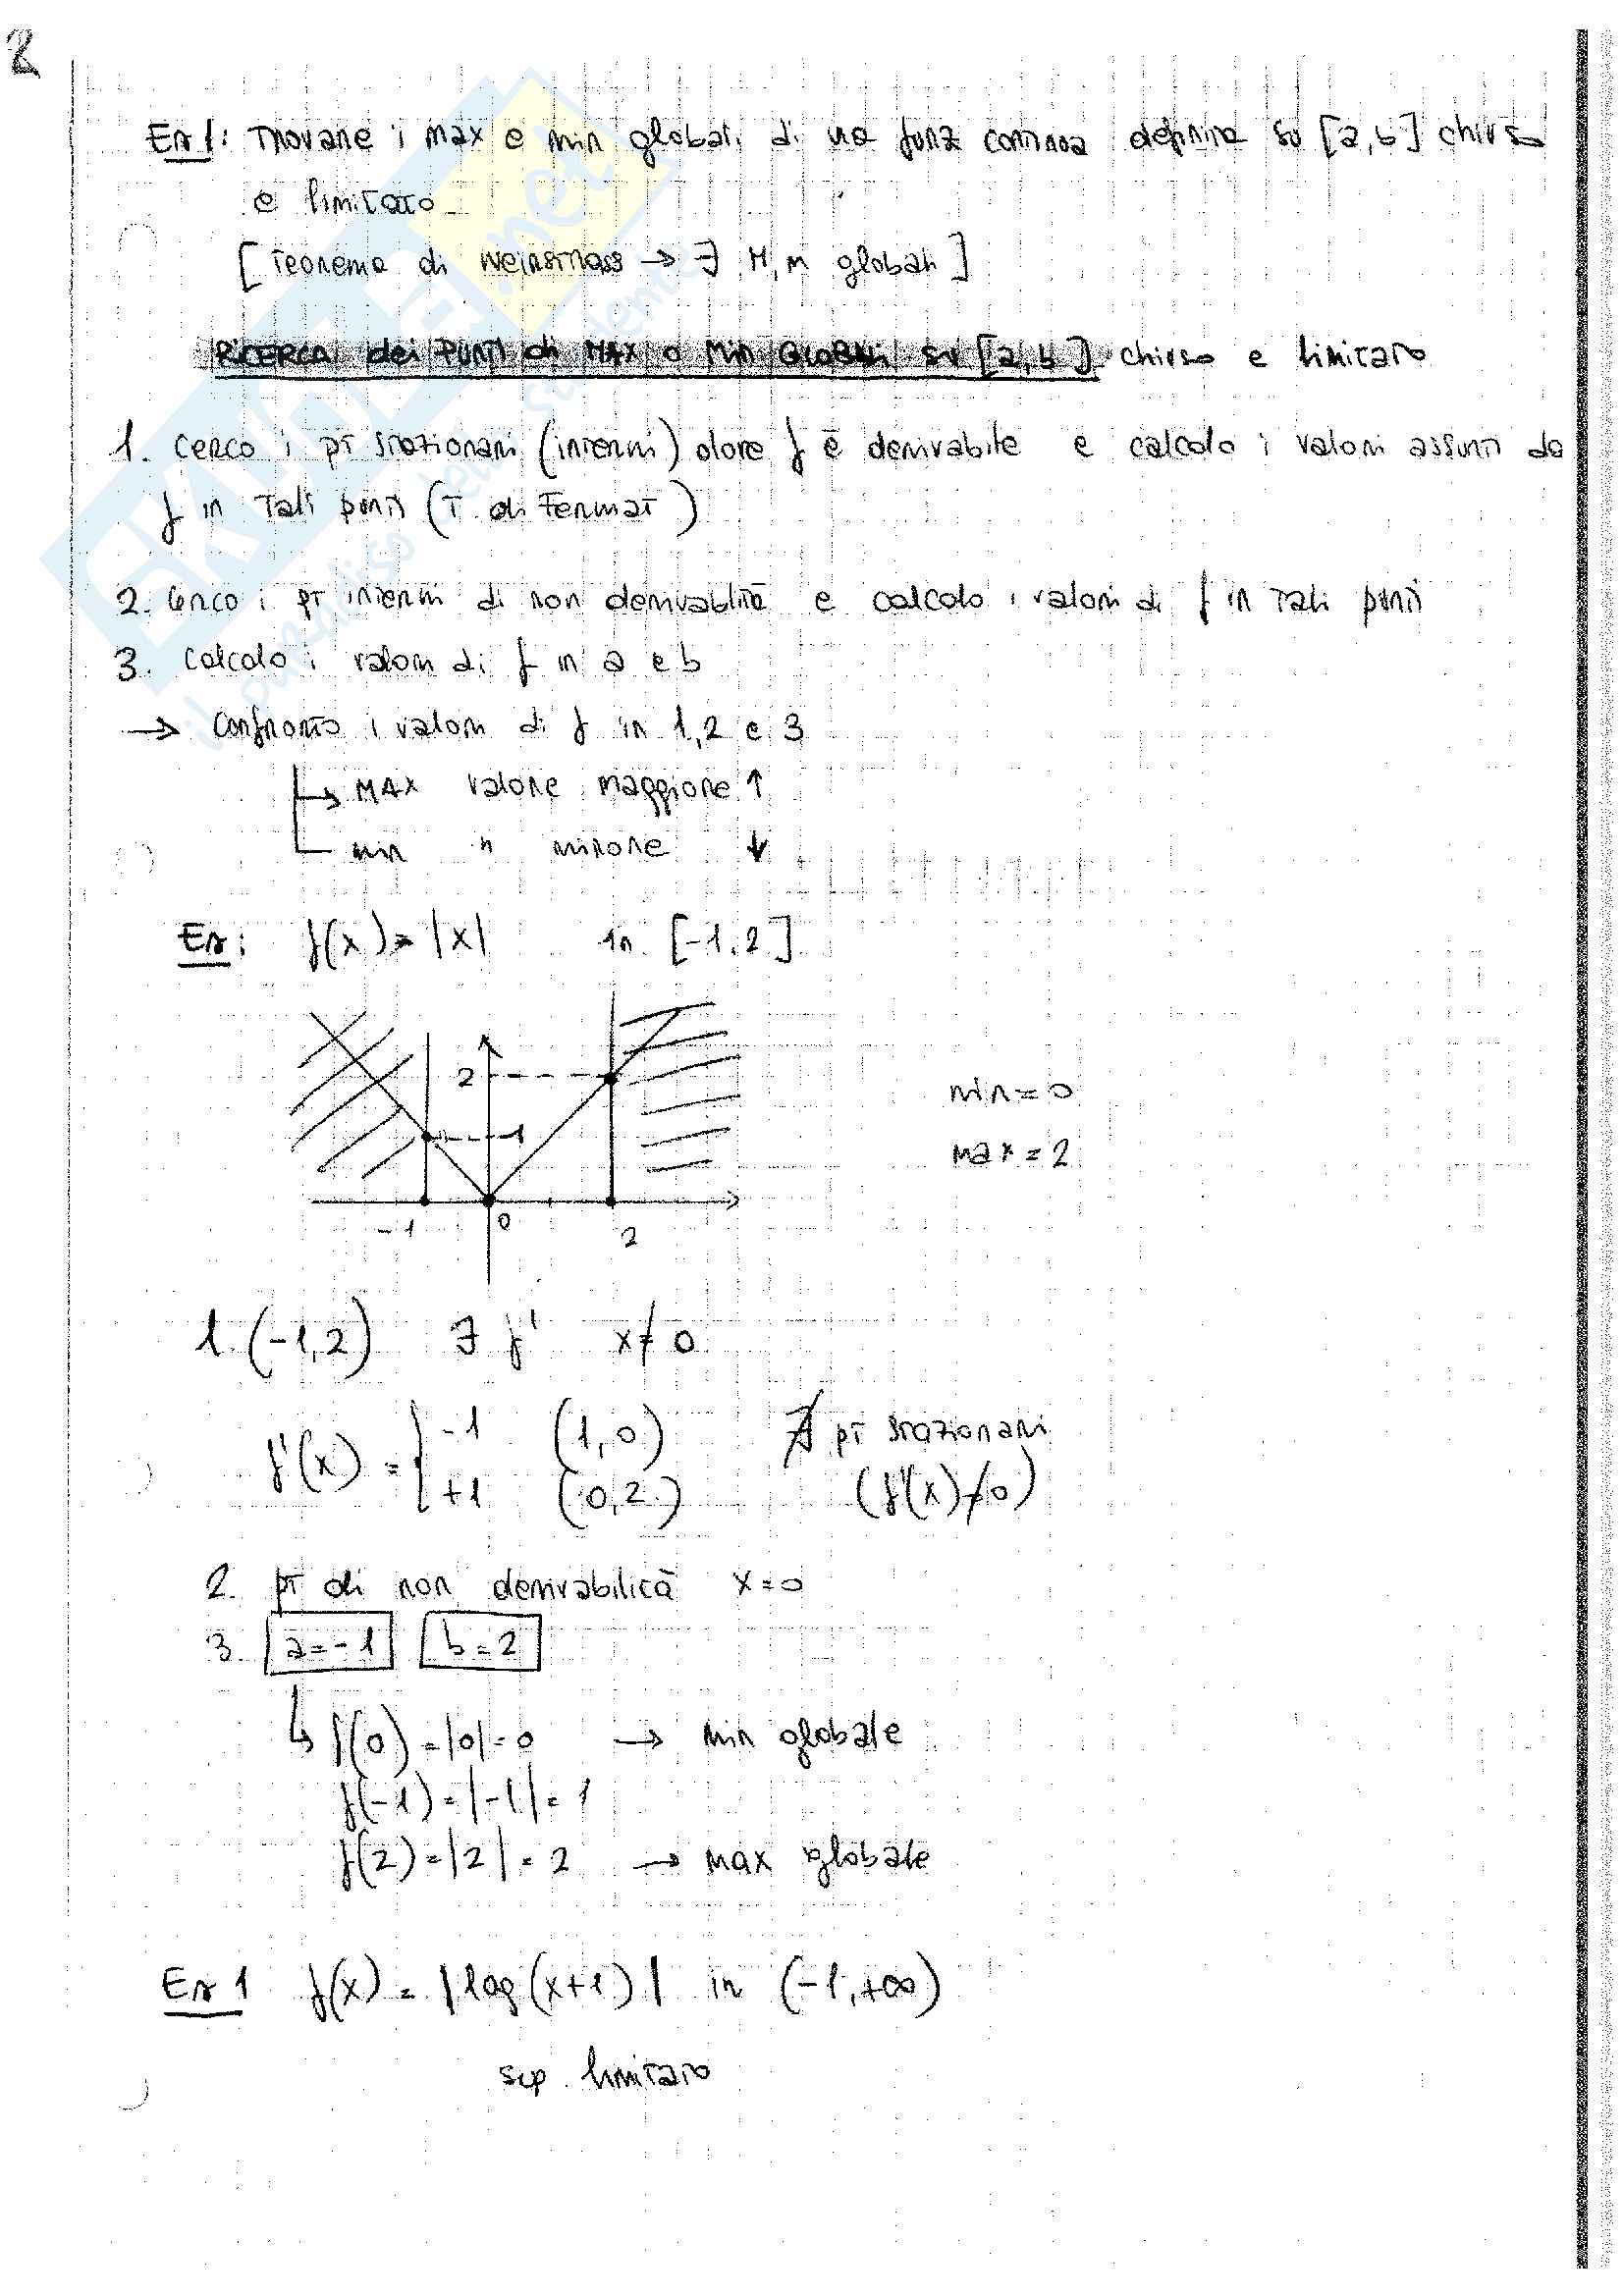 2
Es 1: Trovare i max e min globali di una funz continua definita su [a,b] chiuso
e limitato
[Teorema di Weirstrass → ∃ M, m globali]
RICERCA dei PUNTI di MAX o Min GLOBALI su [a,b] chiuso e limitato
1. Cerco i pt stazionari (interni) dove f è derivabile e calcolo i valori assunti da
f in tali punti (T. di Fermat)
2. Cerco i pt interni di non derivabilità e calcolo i valori di f in tali punti
3. Calcolo i valori di f in a e b
→ Confronto i valori di f in 1, 2 e 3
↳ MAX valore maggiore ↑
min " minore ↓
Es: f(x) = |x| in [-1,2]
2
1
-1 0 2
min = 0
max = 2
1. (-1,2) ∃ f' x≠0
f'(x) = { -1 (1,0)
+1 (0,2)
∄ pt stazionari
(f'(x)≠0)
2. pt di non derivabilità x=0
3. a=-1 b=2
↳ f(0)=|0|=0 → min globale
f(-1)=|-1|=1
f(2)=|2|=2 → max globale
Es 1 f(x) = |log(x+1)| in (-1,+∞)
sup. limitato
SKUOLA.net
il paradiso dello studente